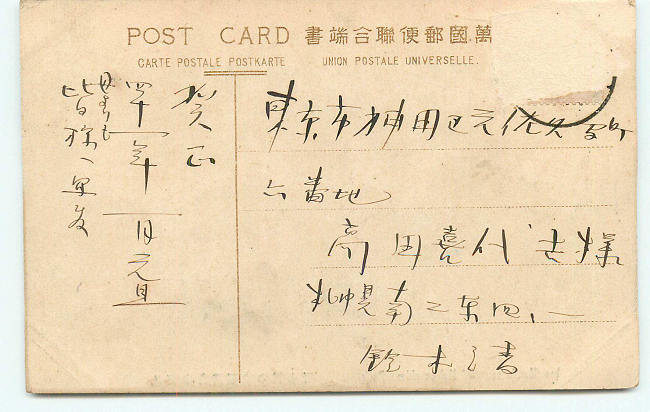 POST CARD 書端合聯便郵國萬
CARTE POSTALE POSTKARTE UNION POSTALE UNIVERSELLE.
東京市神田区元佐久間町
六番地
高田喜代吉様
札幌南二東四ノ一
鈴木清
賀正
四十一年一月元旦
皆様へ宜敷